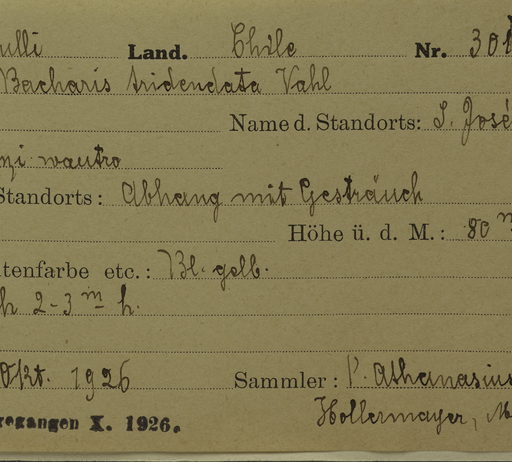 ulli Land. Chile Nr. 301
Bacharis tridendata Vahl
Name d. Standorts: S. José
wautro
Standorts: Abhang mit Gesträuch
Höhe ü. d. M.: 80 m
tenfarbe etc.: Bl. gelb.
h 2-3 m h.
Okt. 1926 Sammler: P. Athanasius
Hollermayer, M
egangen X. 1926.